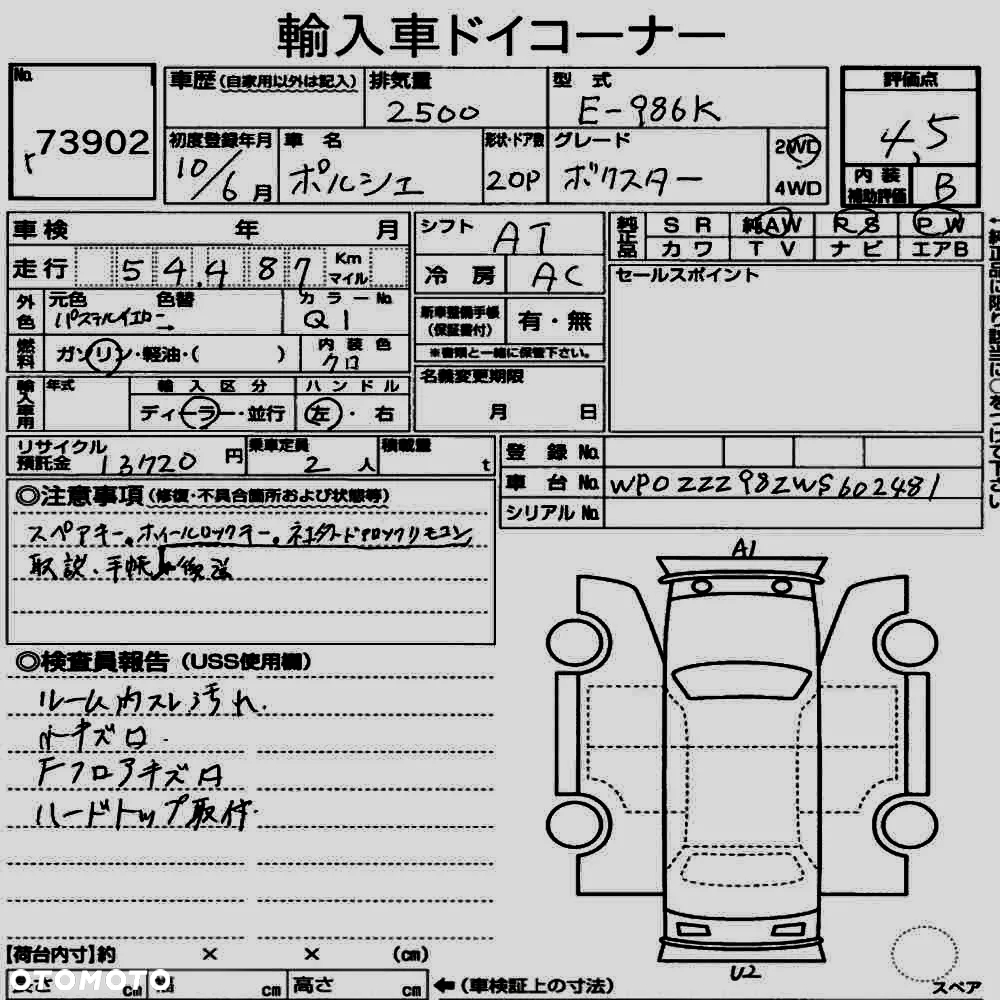 輸入車ドイコーナー
No. 73902
車歴(自家用以外は記入) 排気量 2500 型式 E-986K 評価点 4.5
初度登録年月 10/6月 車名 ポルシェ 形状・ドア数 2OP グレード ボクスター 2WD 4WD
内装補助評価 B
車検 年 月 シフト AT 純正品 SR 純AW PS PW
カワ TV ナビ エアB
走行 54,487 Km マイル 冷房 AC セールスポイント
外色 元色 パステルイエロー 色替 → カラーNo. Q1 新車整備手帳(保証書付) 有・無
燃料 ガソリン・軽油・( ) 内装色 クロ ※書類と一緒に保管下さい。
輸入車用 年式 輸入区分 ディーラー・並行 ハンドル 左・右 名義変更期限 月 日
←純正品に限り該当に○をつけて下さい
リサイクル預託金 13720円 乗車定員 2人 積載量 t 登録No.
車台No. WP0ZZZ98ZWS602481
シリアルNo.
◎注意事項(修復・不具合箇所および状態等)
スペアキー。ホイールロックキー。
取説・手帳 後送
◎検査員報告(USS使用欄)
ルーム内スレ汚れ.
キズ
Fフロアキズ
ハードトップ取付.
A1
U2
スペア
【荷台内寸】約 × × (cm)
長さ cm 幅 cm 高さ cm ←(車検証上の寸法)
OTOMOTO